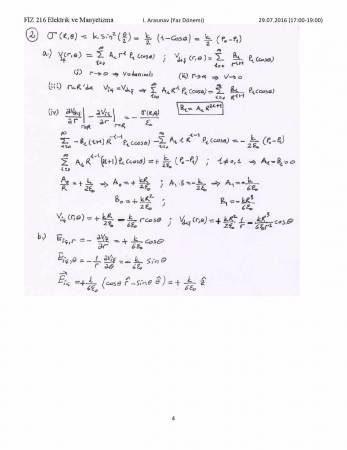 FIZ 216 Elektrik ve Manyetizma I. Arasınav (Yaz Dönemi) 29.07.2016 (17:00-19:00)
2) σ(R,θ) = k sin²(θ/2) = k/2 (1-Cosθ) = k/2 (P₀-P₁)
a.) V_iç(r,θ) = Σ A_ℓ r^ℓ P_ℓ(cosθ) ; V_dış(r,θ) = Σ B_ℓ/r^(ℓ+1) P_ℓ(cosθ)
(i) r→0 ⇒ V → tanımlı (ii) r→∞ ⇒ V→0
(iii) r=R'de V_iç = V_dış ⇒ Σ A_ℓ R^ℓ P_ℓ(cosθ) = Σ B_ℓ/R^(ℓ+1) P_ℓ(cosθ)
B_ℓ = A_ℓ R^(2ℓ+1)
(iv) ∂V_dış/∂r |r=R - ∂V_iç/∂r |r=R = - σ(R,θ)/ε₀
Σ -B_ℓ(ℓ+1) R^(-ℓ-2) P_ℓ(cosθ) - Σ A_ℓ ℓ R^(ℓ-1) P_ℓ(cosθ) = - k/2ε₀ (P₀-P₁)
Σ A_ℓ R^(ℓ-1) (2ℓ+1) P_ℓ(cosθ) = + k/2ε₀ (P₀-P₁) ; ℓ≠0,1 → A_ℓ = B_ℓ = 0
A₀/R = + k/2ε₀ → A₀ = + kR/2ε₀ ; A₁·3 = - k/2ε₀ → A₁ = - k/6ε₀
B₀ = + kR²/2ε₀ ; B₁ = - kR³/6ε₀
V_iç(r,θ) = + kR/2ε₀ - k/6ε₀ r cosθ ; V_dış(r,θ) = + kR²/2ε₀ 1/r - kR³/6ε₀r² cosθ
b.) E_iç,r = - ∂V_iç/∂r = + k/6ε₀ cosθ
E_iç,θ = - 1/r ∂V_iç/∂θ = - k/6ε₀ sinθ
E_iç = + k/6ε₀ (cosθ r̂ - sinθ θ̂) = + k/6ε₀ ẑ
4